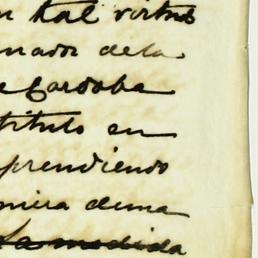 n tal virtud
nador dela
e Cordoba
titulo en
prendiendo
mera dema
la medida